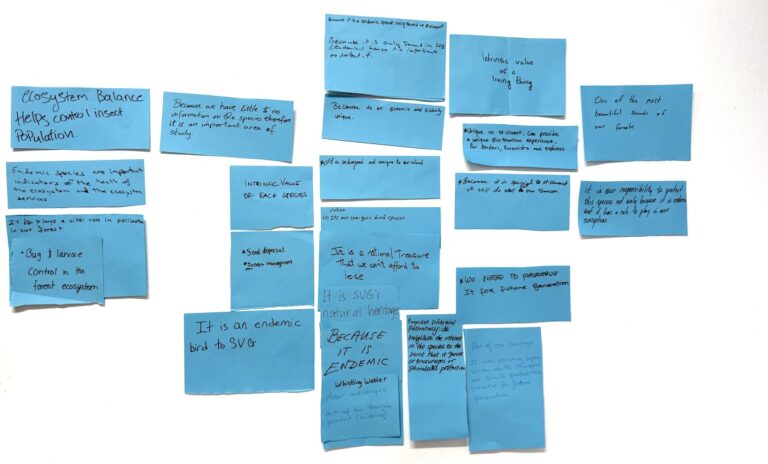 Ecosystem Balance
Helps control insect
Population.
Endemic species are important
indicators of the health of
the ecosystem and the ecosystem
services
It plays a vital role in
in our forest
* Bug & larvae
control in the
forest ecosystem
Because we have little to no
information on the species therefore
it is an important area of
study.
INTRINSIC VALUE
OF EACH SPECIES
* Seed dispersal
* Insect management
It is an endemic
bird to SVG
Because it is a endemic specie only found in
Because it is only found in SVG
(endemic) hence it's important
to protect it.
Because is an endemic and
unique.
It is endemic and unique to our island
Value
It is a national treasure
that we can't afford to
lose
It is SVG's
natural heritage
BECAUSE
IT IS
ENDEMIC
Whistling Warbler
Rear and unique
part of our tourism
product (birding)
Intrinsic value
of a
living thing
* Unique to St Vincent, Can provide
a unique Ecotourism experience,
for
* Because it is to St Vincent
it will do well to our Tourism
* WE NEED TO PRESERVE
IT FOR FUTURE Generation
heighten the interest
in the species to the
point that it
or encourages or
stimulates protection
Part of our heritage
It was existing before
generation
One of the most
beautiful sounds of
our forests
It is our responsibility to protect
this species not only because it is endemic
but it has a role to play in our
ecosystem.